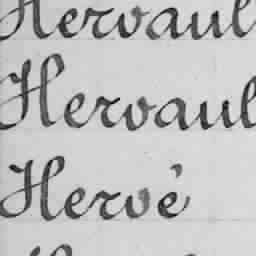 Hervaul
Hervaul
Hervé